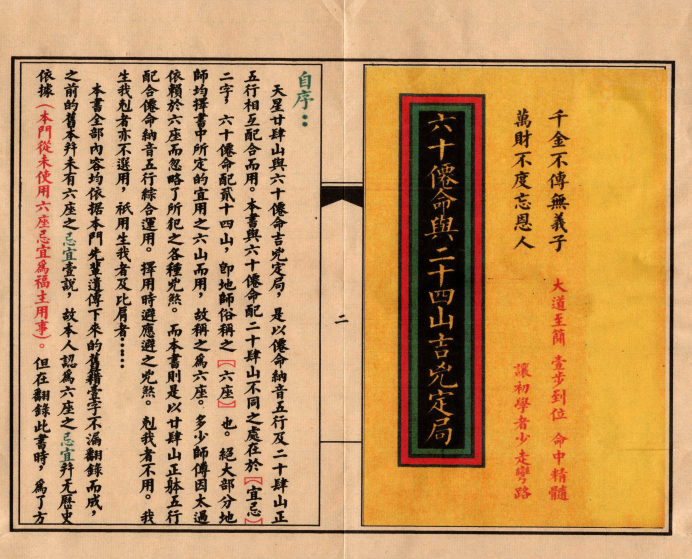 千金不傳無義子
萬財不度忘恩人
大道至簡 壹步到位 命中精髓
讓初學者少走彎路
六十僊命與二十四山吉兇定局
二
自序：
天星廿肆山與六十僊命吉兇定局，是以僊命納音五行及二十肆山正
五行相互配合而用。本書與六十僊命配二十肆山不同之處在於【宜忌】
二字，六十僊命配貳十四山，卽地師俗稱之【六座】也。絕大部分地
師均擇書中所定的宜用之六山而用，故稱之爲六座。多少師傅因太過
依賴於六座而忽略了所犯之各種兇煞。而本書則是以廿肆山正躰五行
配合僊命納音五行綜合運用。擇用時避應避之兇煞。剋我者不用。我
生我剋者亦不選用，祇用生我者及比肩者……
本書全部內容均依据本門先輩遺傳下來的舊籍壹字不漏翻錄而成，
之前的舊本幷未有六座之忌宜壹說，故本人認爲六座之忌宜幷无歷史
依據（本門從未使用六座忌宜爲福主用事）。但在翻錄此書時，爲了方